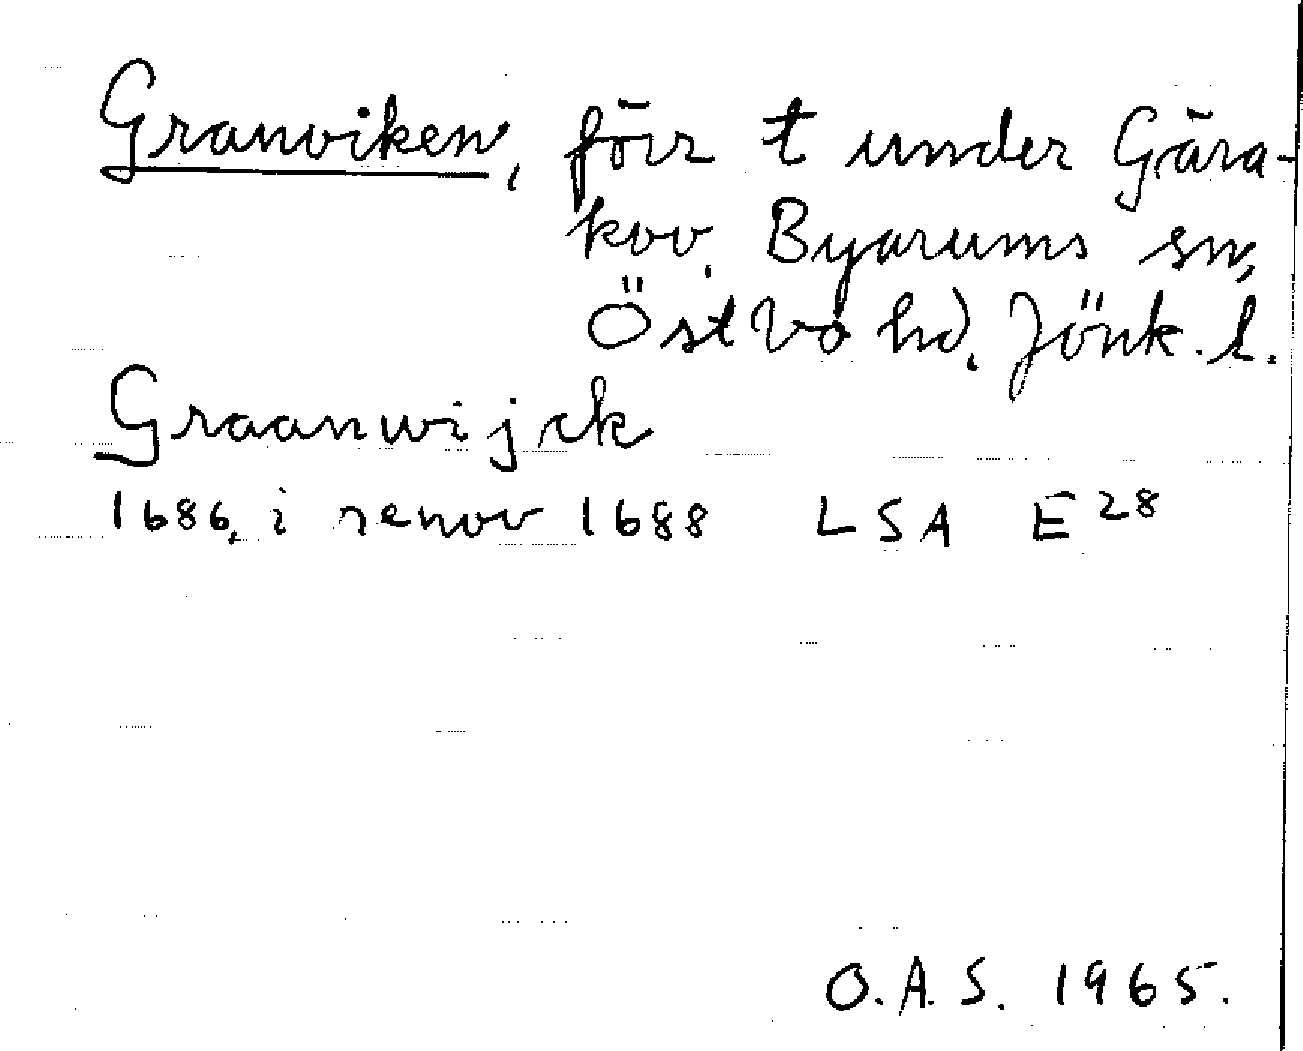 Granviken, förr t under Gära-
kov, Byarums sn,
Östbo hd, Jönk. l.
Graanwijck
1686, i renov 1688 LSA E28
O.A.S. 1965.